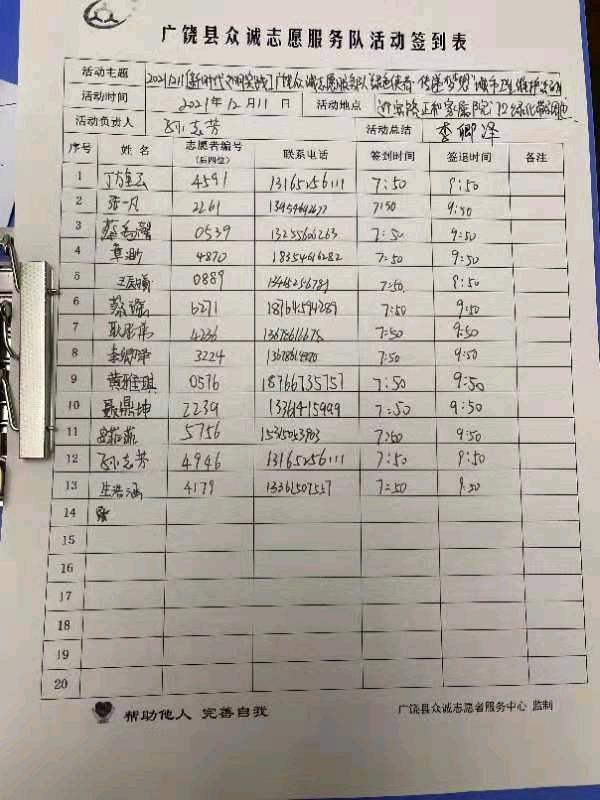 广饶县众诚志愿服务队活动签到表
活动主题 20211211[新时代文明实践]广饶众诚志愿服务队"绿色使者·传递梦想"城市卫生维护活动
活动时间 2021年12月11日 活动地点 迎宾路正和家属院门口绿化带
活动负责人 孙志芳 活动总结 李卿泽
序号 姓名 志愿者编号(后四位) 联系电话 签到时间 签退时间 备注
1 4591 13165256111 7:50 9:50
2 张一凡 2261 7:50 9:50
3 0539 13255626263 7:50 9:50
4 4870 18354616282 7:50 9:50
5 0889 7:50 9:50
6 6271 18764594289 7:50 9:50
7 4236 13675616675 7:50 9:50
8 李卿泽 3224 7:50 9:50
9 黄雅琪 0576 18766735757 7:50 9:50
10 聂鼎坤 2239 13361415999 7:50 9:50
11 5756 15315053903 7:50 9:50
12 孙志芳 4946 13165256111 7:50 9:50
13 生浩涵 4179 13361507557 7:50 9:50
14
15
16
17
18
19
20
帮助他人 完善自我 广饶县众诚志愿者服务中心 监制